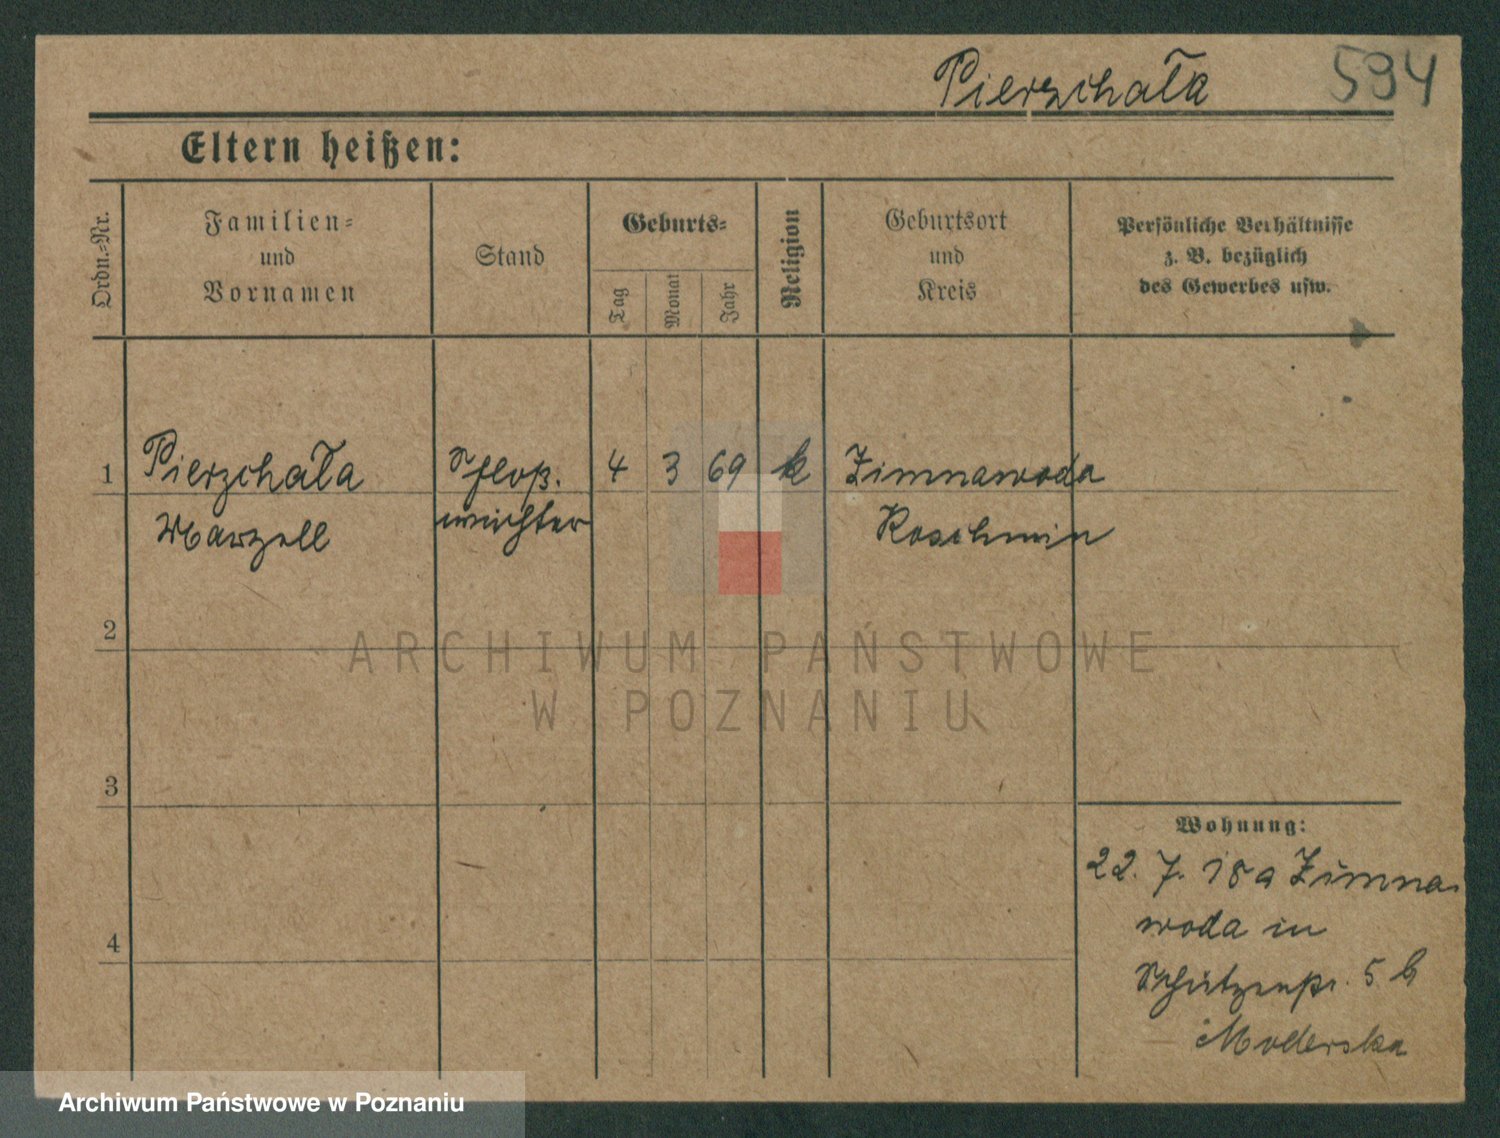 Pierzchała 594
Eltern heißen:
Ordn.-Nr.
Familien- und Vornamen
Stand
Geburts-
Tag
Monat
Jahr
Religion
Geburtsort und Kreis
Persönliche Verhältnisse
z. B. bezüglich
des Gewerbes usw.
1 Pierzchała Schloß. 4 3 69 k Zimnawoda
Marzell wächter Koschmin
2
ARCHIWUM PAŃSTWOWE
W POZNANIU
3
Wohnung:
22. 7. 18 a Zimna
woda in
Schützenstr. 5 b
Moderska
4
Archiwum Państwowe w Poznaniu